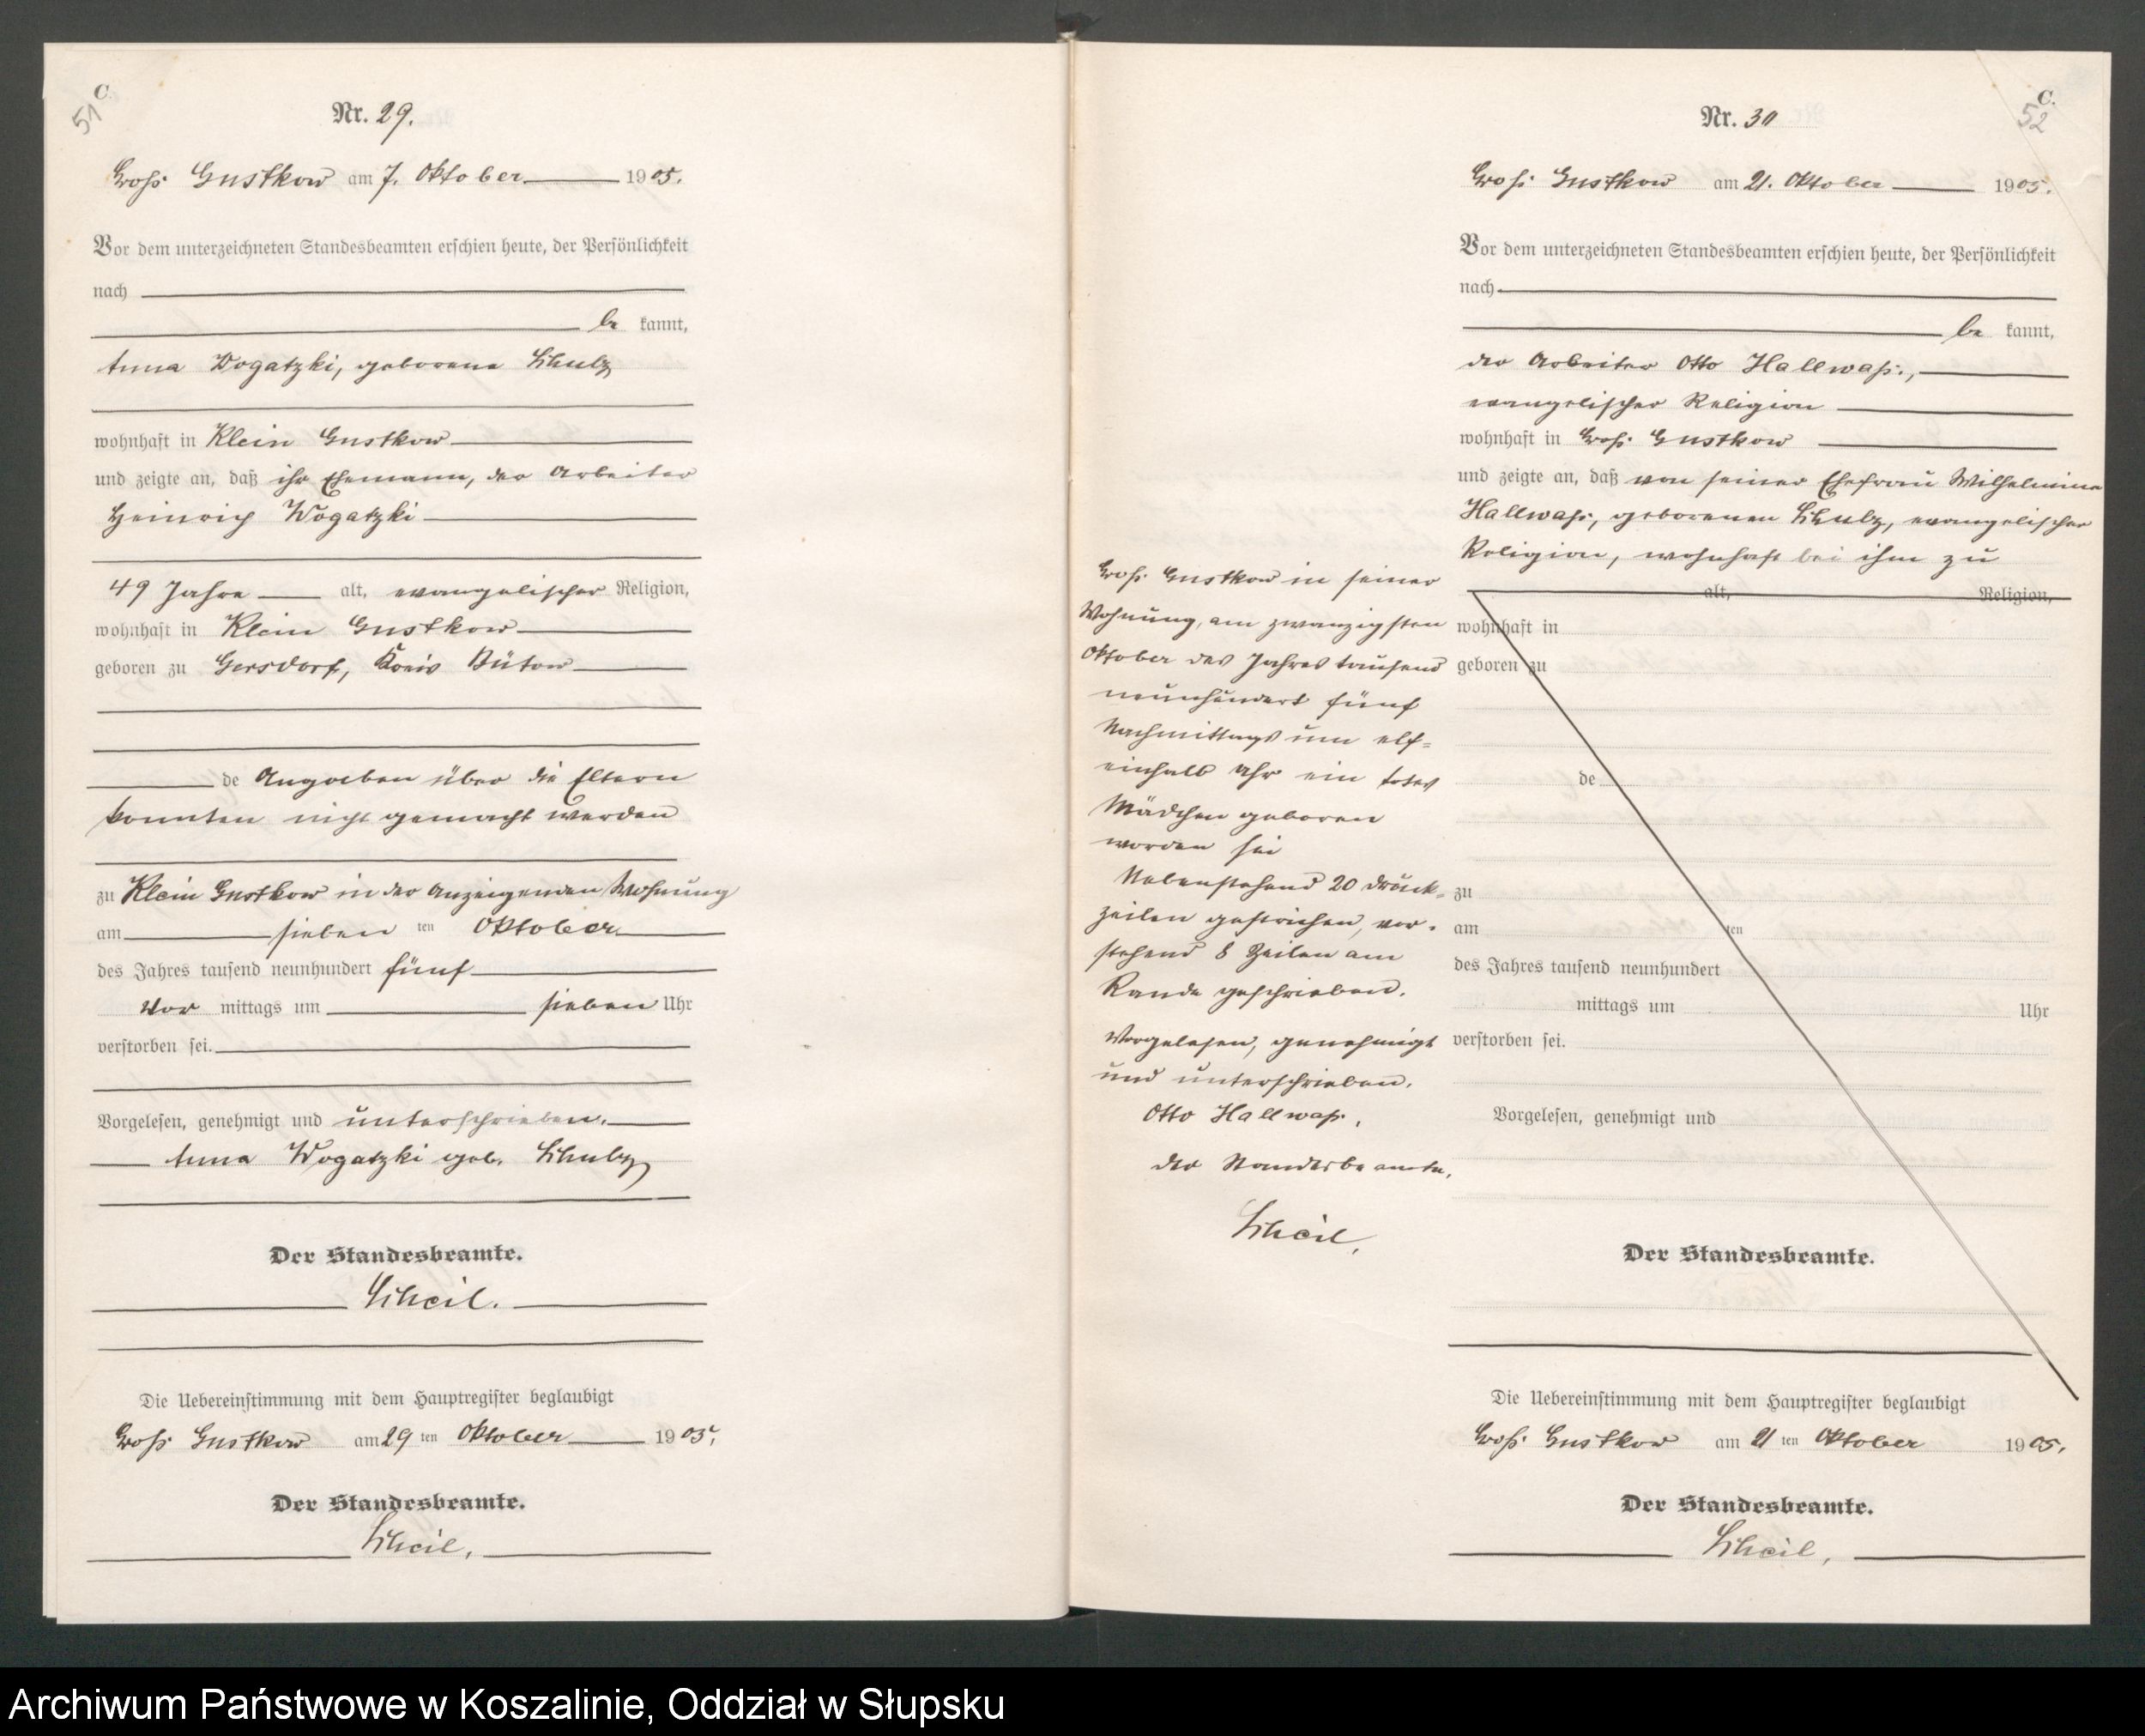 C.
51
Nr. 29.
Groß Gustkow am 7. Oktober 1905.
Vor dem unterzeichneten Standesbeamten erschien heute, der Persönlichkeit
nach
be kannt,
Anna Wogatzki, geborene Schulz
wohnhaft in Klein Gustkow
und zeigte an, daß ihr Ehemann, der Arbeiter
Heinrich Wogatzki
49 Jahre alt, evangelischer Religion,
wohnhaft in Klein Gustkow
geboren zu Gersdorf, Kreis Bütow
de Angaben über die Eltern
konnten nicht gemacht werden
zu Klein Gustkow in der Anzeigenden Wohnung
am sieben ten Oktober
des Jahres tausend neunhundert fünf
Vor mittags um sieben Uhr
verstorben sei.
Vorgelesen, genehmigt und unterschrieben.
Anna Wogatzki geb. Schulz
Der Standesbeamte.
Scheil.
Die Uebereinstimmung mit dem Hauptregister beglaubigt
Groß Gustkow am 29 ten Oktober 1905.
Der Standesbeamte.
Scheil.
C.
52
Nr. 30
Groß Gustkow am 21. Oktober 1905.
Vor dem unterzeichneten Standesbeamten erschien heute, der Persönlichkeit
nach
be kannt,
der Arbeiter Otto Hallwaß,
evangelischer Religion
wohnhaft in Groß Gustkow
und zeigte an, daß von seiner Ehefrau Wilhelmine
Hallwaß, geborenen Schulz, evangelischer
Religion, wohnhaft bei ihm zu
Groß Gustkow in seiner
Wohnung, am zwanzigsten
Oktober des Jahres tausend
neunhundert fünf
Nachmittags um elf-
einhalb Uhr ein totes
Mädchen geboren
worden sei
Nebenstehend 20 Druck-
zeilen gestrichen, vor-
stehend 8 Zeilen am
Rande geschrieben.
Vorgelesen, genehmigt
und unterschrieben.
Otto Hallwaß.
Der Standesbeamte.
Scheil.
alt, Religion,
wohnhaft in
geboren zu
de
zu
am ten
des Jahres tausend neunhundert
mittags um Uhr
verstorben sei.
Vorgelesen, genehmigt und
Der Standesbeamte.
Die Uebereinstimmung mit dem Hauptregister beglaubigt
Groß Gustkow am 21 ten Oktober 1905.
Der Standesbeamte.
Scheil.
Archiwum Państwowe w Koszalinie, Oddział w Słupsku